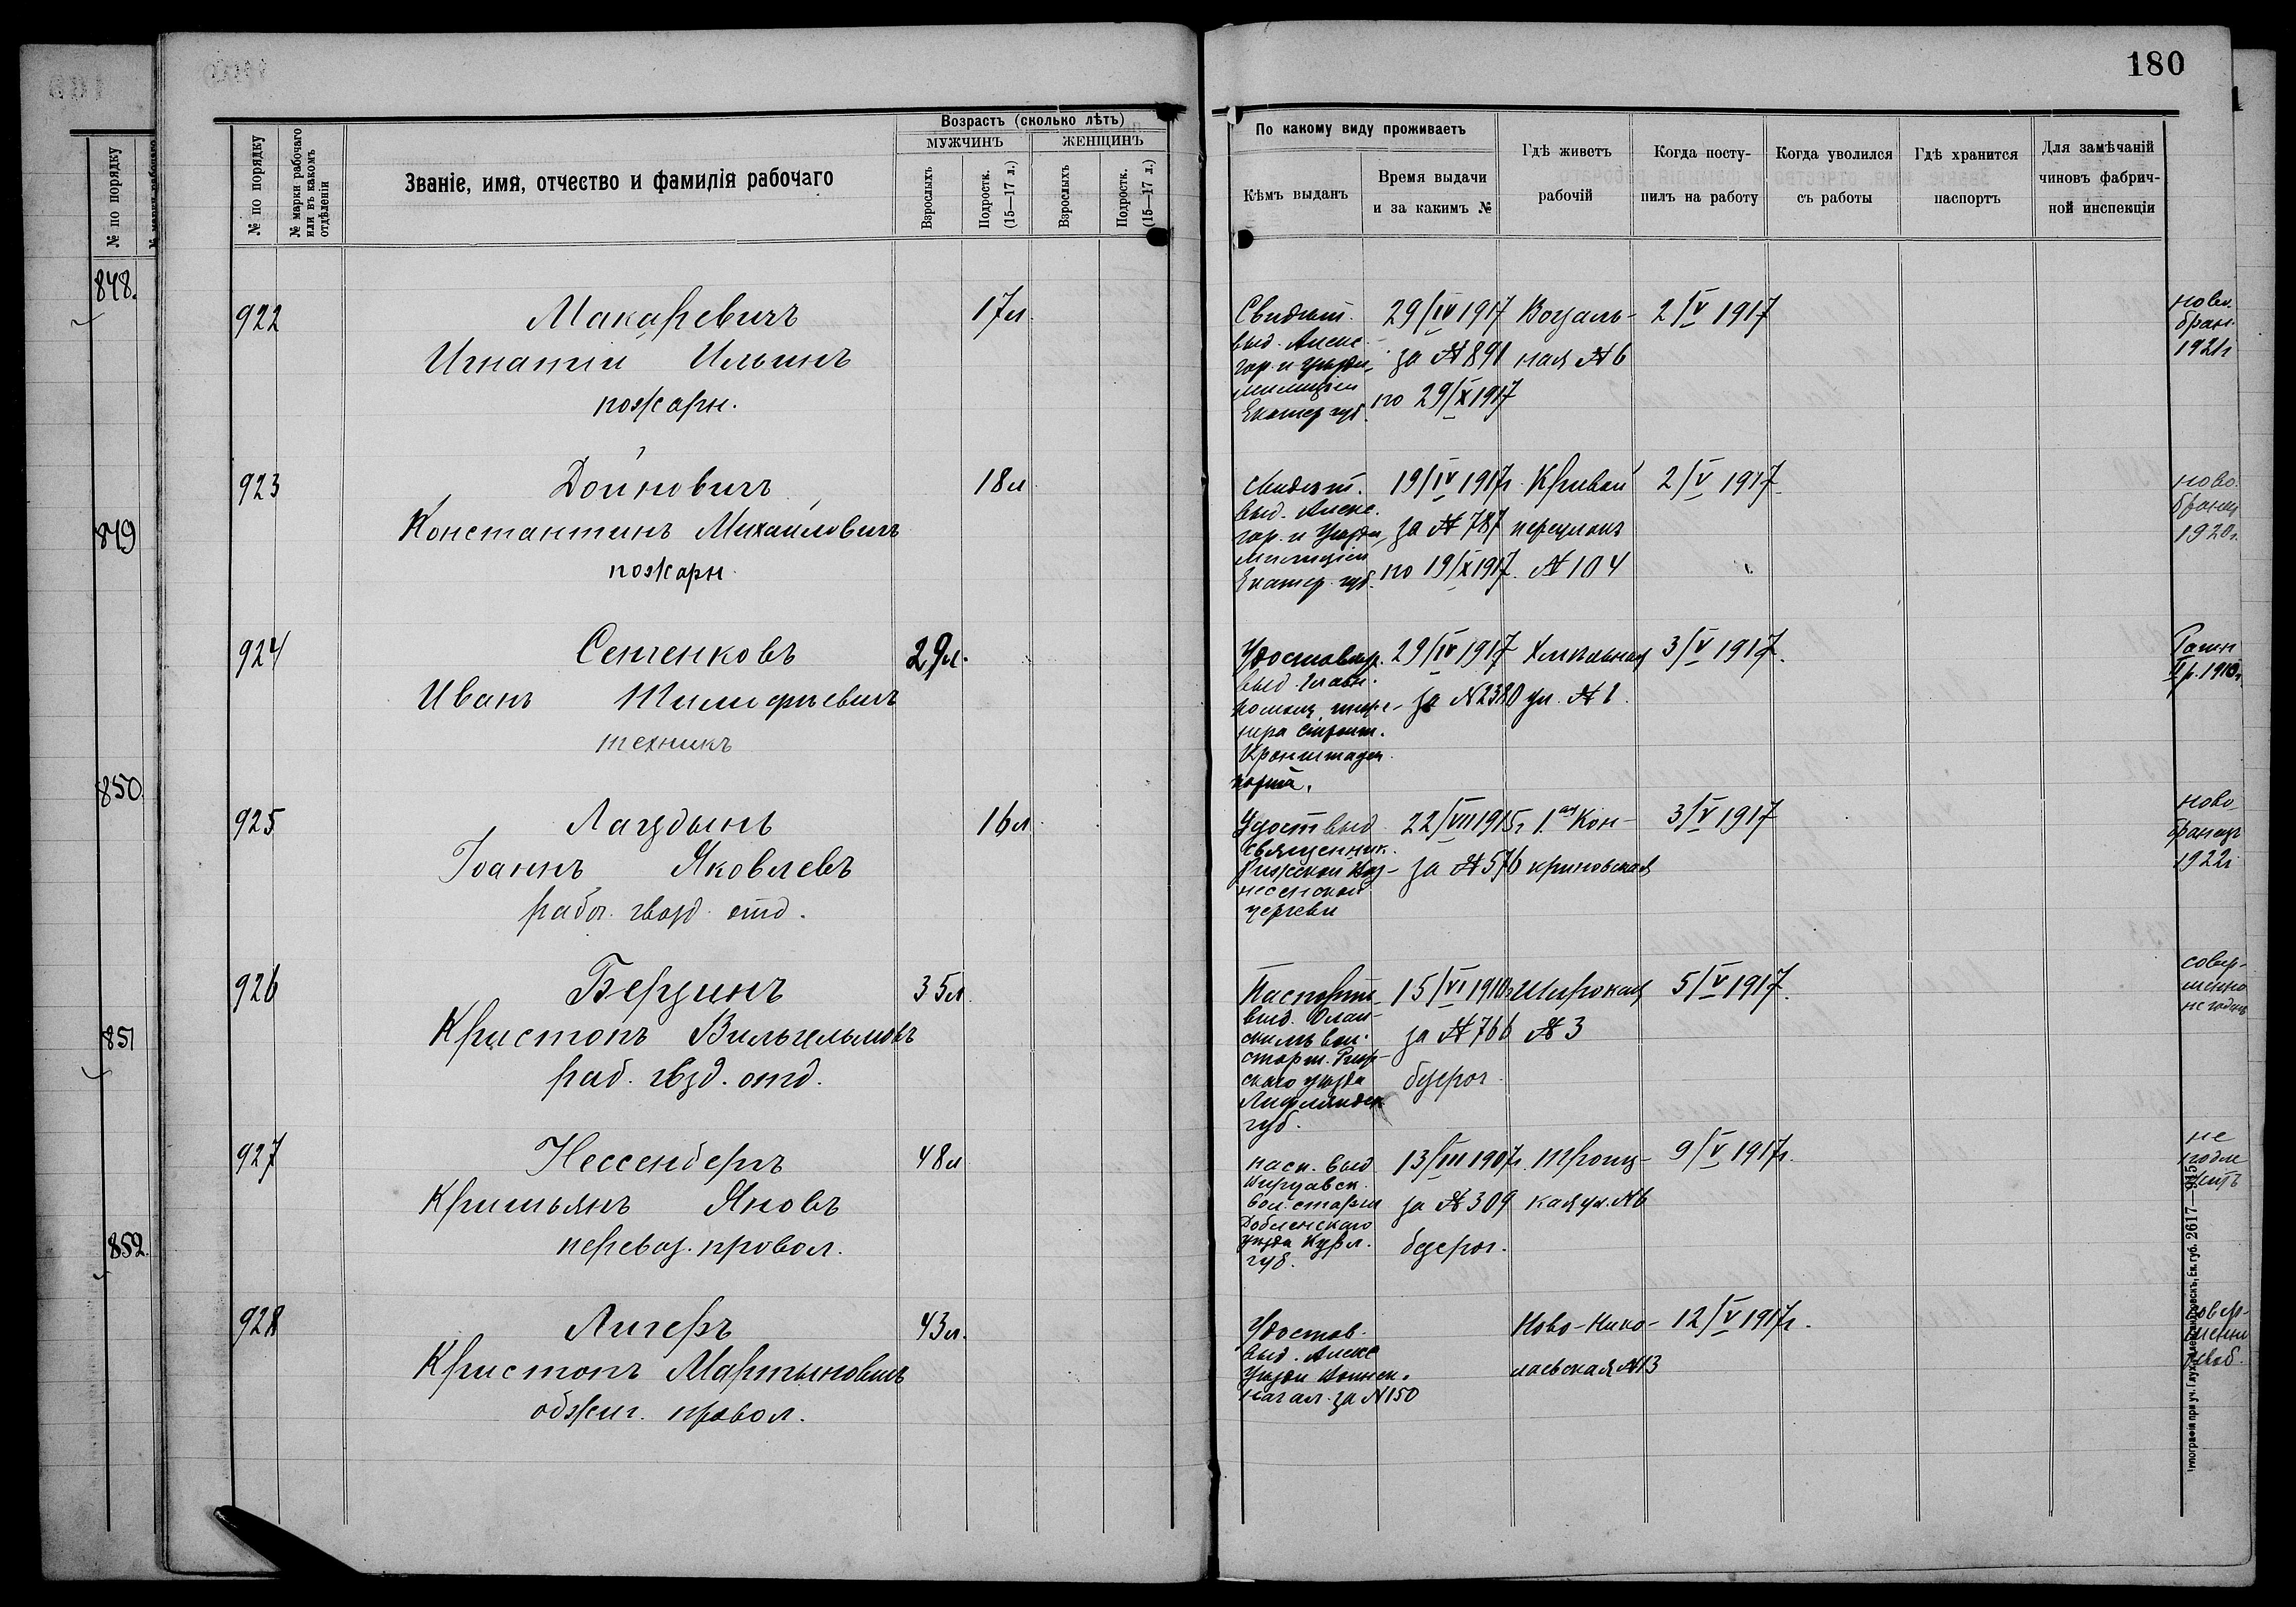 180
№ по порядку
№ марки рабочаго или въ какомъ отдѣленіи
Званіе, имя, отчество и фамилія рабочаго
Возрастъ (сколько лѣтъ)
МУЖЧИНЪ
ЖЕНЩИНЪ
Взрослыхъ
Подростк. (15—17 л.)
Взрослыхъ
Подростк. (15—17 л.)
По какому виду проживаетъ
Кѣмъ выданъ
Время выдачи
и за какимъ №
Гдѣ живетъ
рабочій
Когда посту-
пилъ на работу
Когда уволился
съ работы
Гдѣ хранится
паспортъ
Для замѣчаній
чиновъ фабрич-
ной инспекціи
№ по порядку
848.
849
850.
851
852.
922
Макаревичъ
Игнатій Ильинъ
пожарн.
17л.
Свидѣт.
выд. Алекс.
гор. и Уѣздн.
милиціей
Екатер. губ.
29/IV 1917
за № 891
по 29/X 1917
Вокзаль-
ная № 6
2/V 1917
ново.
бран.
1921г
923
Дойновичъ
Константинъ Михайловичъ
пожарн.
18л.
Свидѣт.
выд. Алекс.
гор. и Уѣздн.
милиціей
Екатер. губ.
19/IV 1917г.
за № 787
по 19/X 1917.
Кривой
переулокъ
№ 104
2/V 1917.
ново.
бранец
1920г.
924
Сенченковъ
Иванъ Тимофѣевичъ
техникъ
29л.
Удостовѣр.
выд. Главн.
строит.
Кронштадт.
порта.
29/IV 1917
за № 2380
ул. № 1.
3/V 1917.
925
Лагздынъ
Іоаннъ Яковлевъ
рабоч. гвозд. отд.
16л.
Удост выд
священник.
Рижской Воз-
несенской
церкви
22/VII 1915г
за № 576
1.ая Кон-
криновская
3/V 1917
ново
бранецъ
1922г
926
Берзинъ
Кристопъ Вильгельмовъ
раб. гвзд. отд.
35л.
Паспортъ
выд. Олай-
скимъ вол.
старш. Риж-
скаго уѣзда
Лифляндск.
губ.
15/VI 1910г
за № 766
безсроч.
Широкая
№ 3
5/V 1917.
совер-
шенно
негоденъ
927
Нессенбергъ
Кришьянъ Яновъ
перевоз. провол.
48л
пасп. выд
вол. старш
Добленскаго
уѣзда Курл.
губ.
13/III 1907г.
за № 309
безсроч.
Троиц-
кая ул. № 6
9/V 1917г.
не
подле
житъ
928
Лигеръ
Кристопъ Мартыновичъ
обжиг. провол.
43л.
Удостов.
выд. Алекс
Уѣздн Воинск.
начал. за № 150
Ново-Нико-
лаевская № 13
12/V 1917г.
совер-
шенно
Типографія при уч. Глух. Александровскъ, Ек. губ. 2617—915